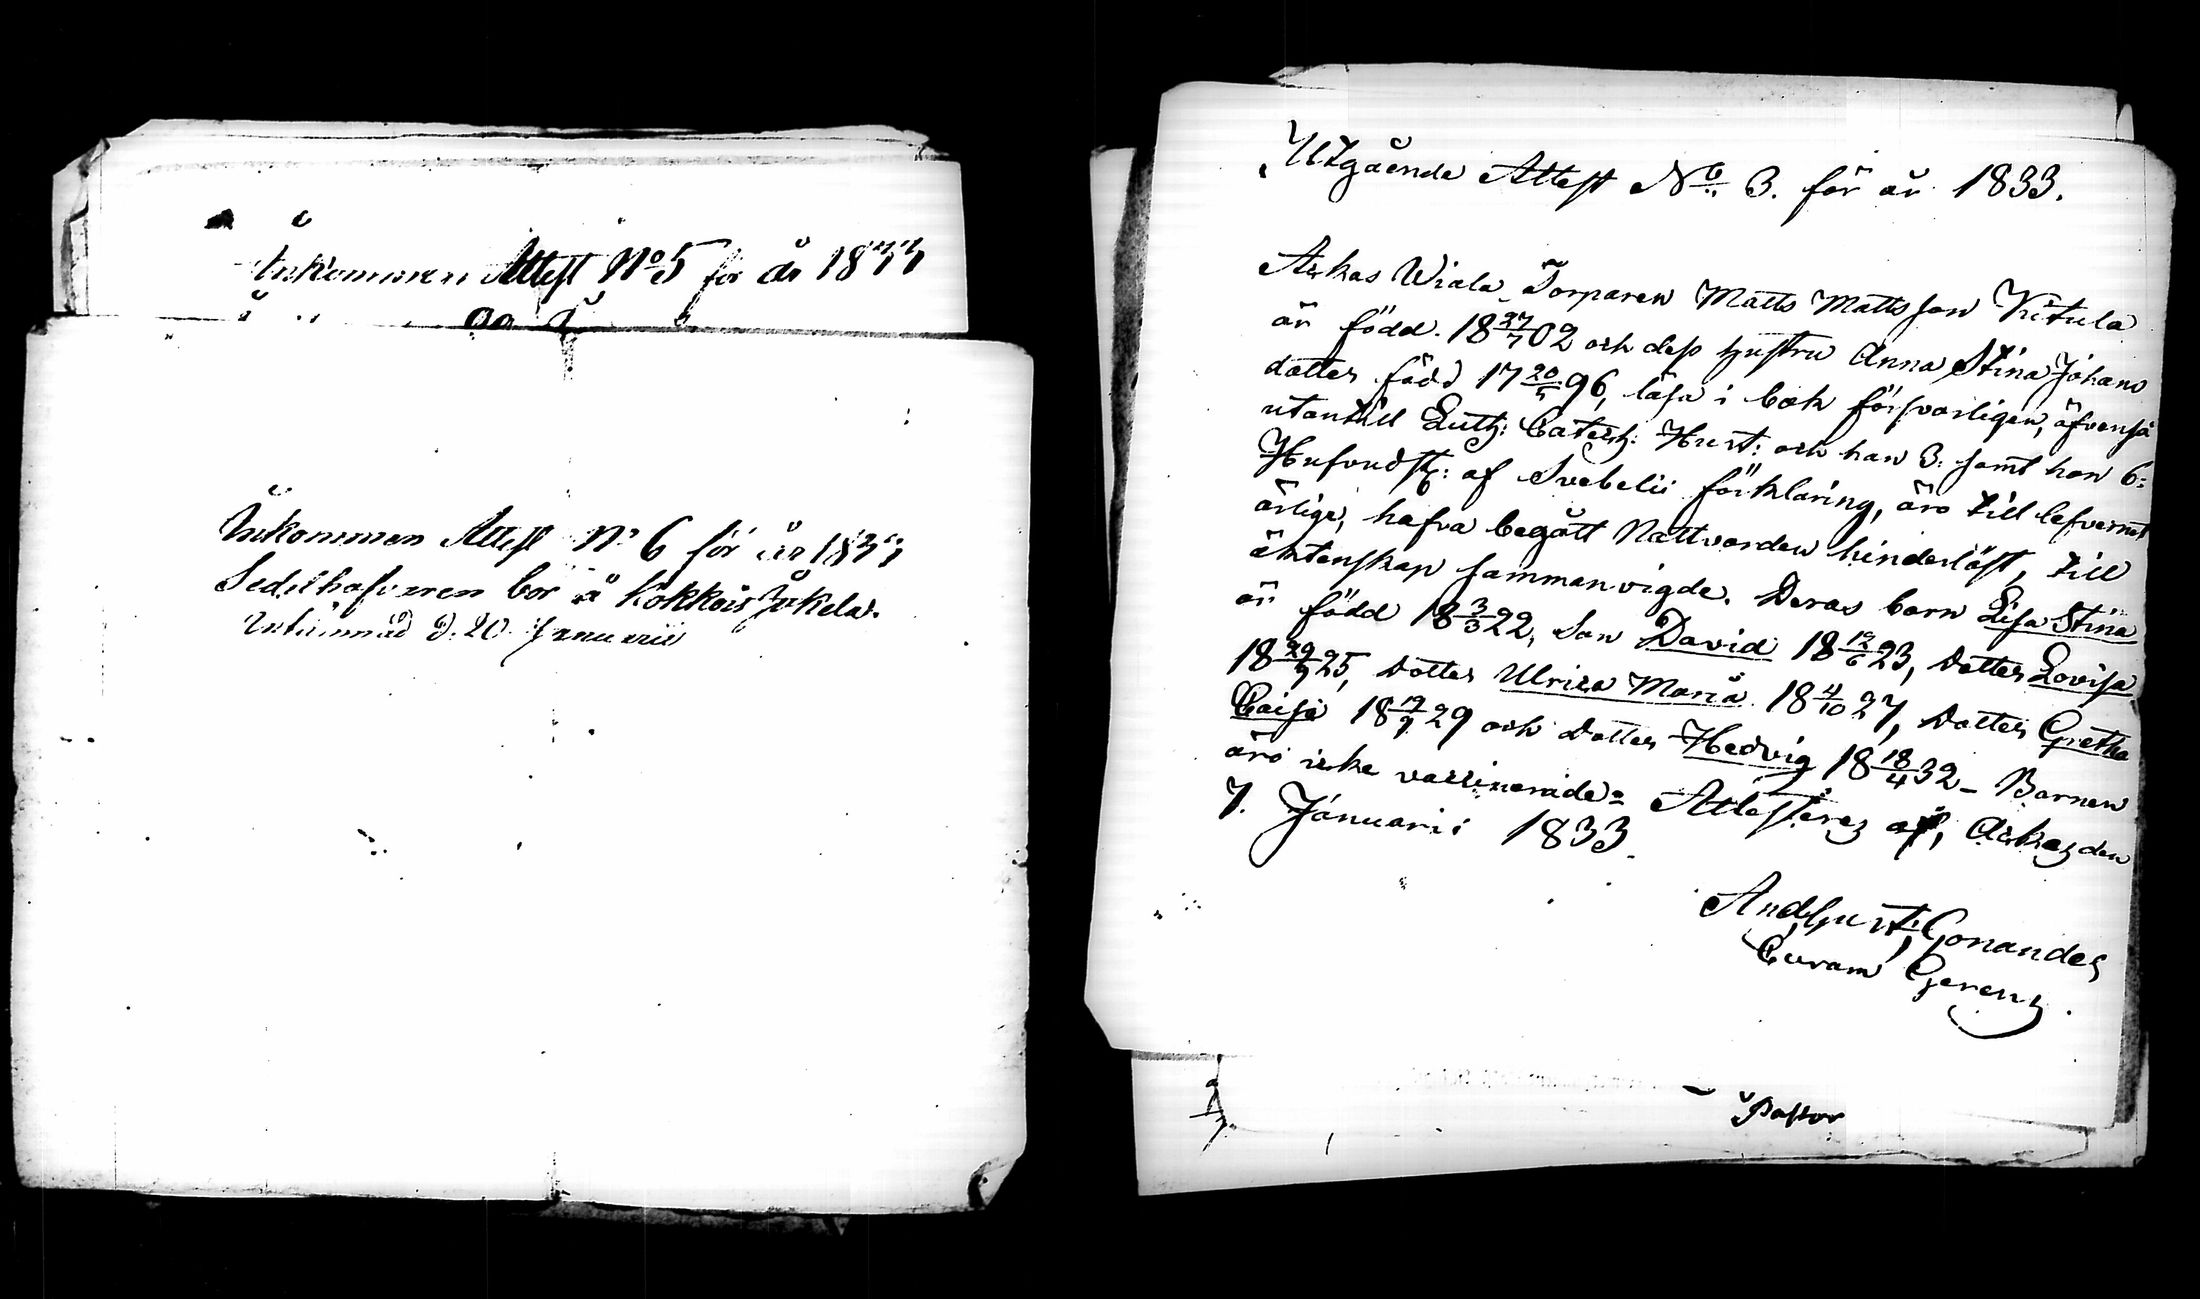 Inkommen Attest No 5 för år 1833
Inkommen Attest No 6 för år 1833
Sedelhafvaren bor å Kokkois Jäkelä.
Inlämnad d. 20 Januarii
Utgående Attest No 3. för år 1833.
Askas Wiala Torparen Matts Mattsson Kitula
är född 18 27/7 02 och dess hustru Anna Stina Johans
dotter född 17 20/5 96, läsa i bok försvarligen, äfvenså
utantill Luth: Catesh: Hust: och han 3: samt hon 6:
Hufvudst: af Svebelii förklaring, äro till lefvernet
ärlige, hafva begått Nattvarden hinderlöst, till
äktenskap sammanvigde. Deras barn Lisa Stina
är född 18 3/3 22, Son David 18 12/6 23, Dotter Lovisa
18 29/9 25, Dotter Ulrica Maria 18 4/10 27, Dotter Gretha
Caisa 18 19/9 29 och Dotter Hedvig 18 18/4 32 - Barnen
äro icke vaccinerade= Attesterez af, Askaz den
7. Januarii 1833.
Curam Gerenz.
Pastor